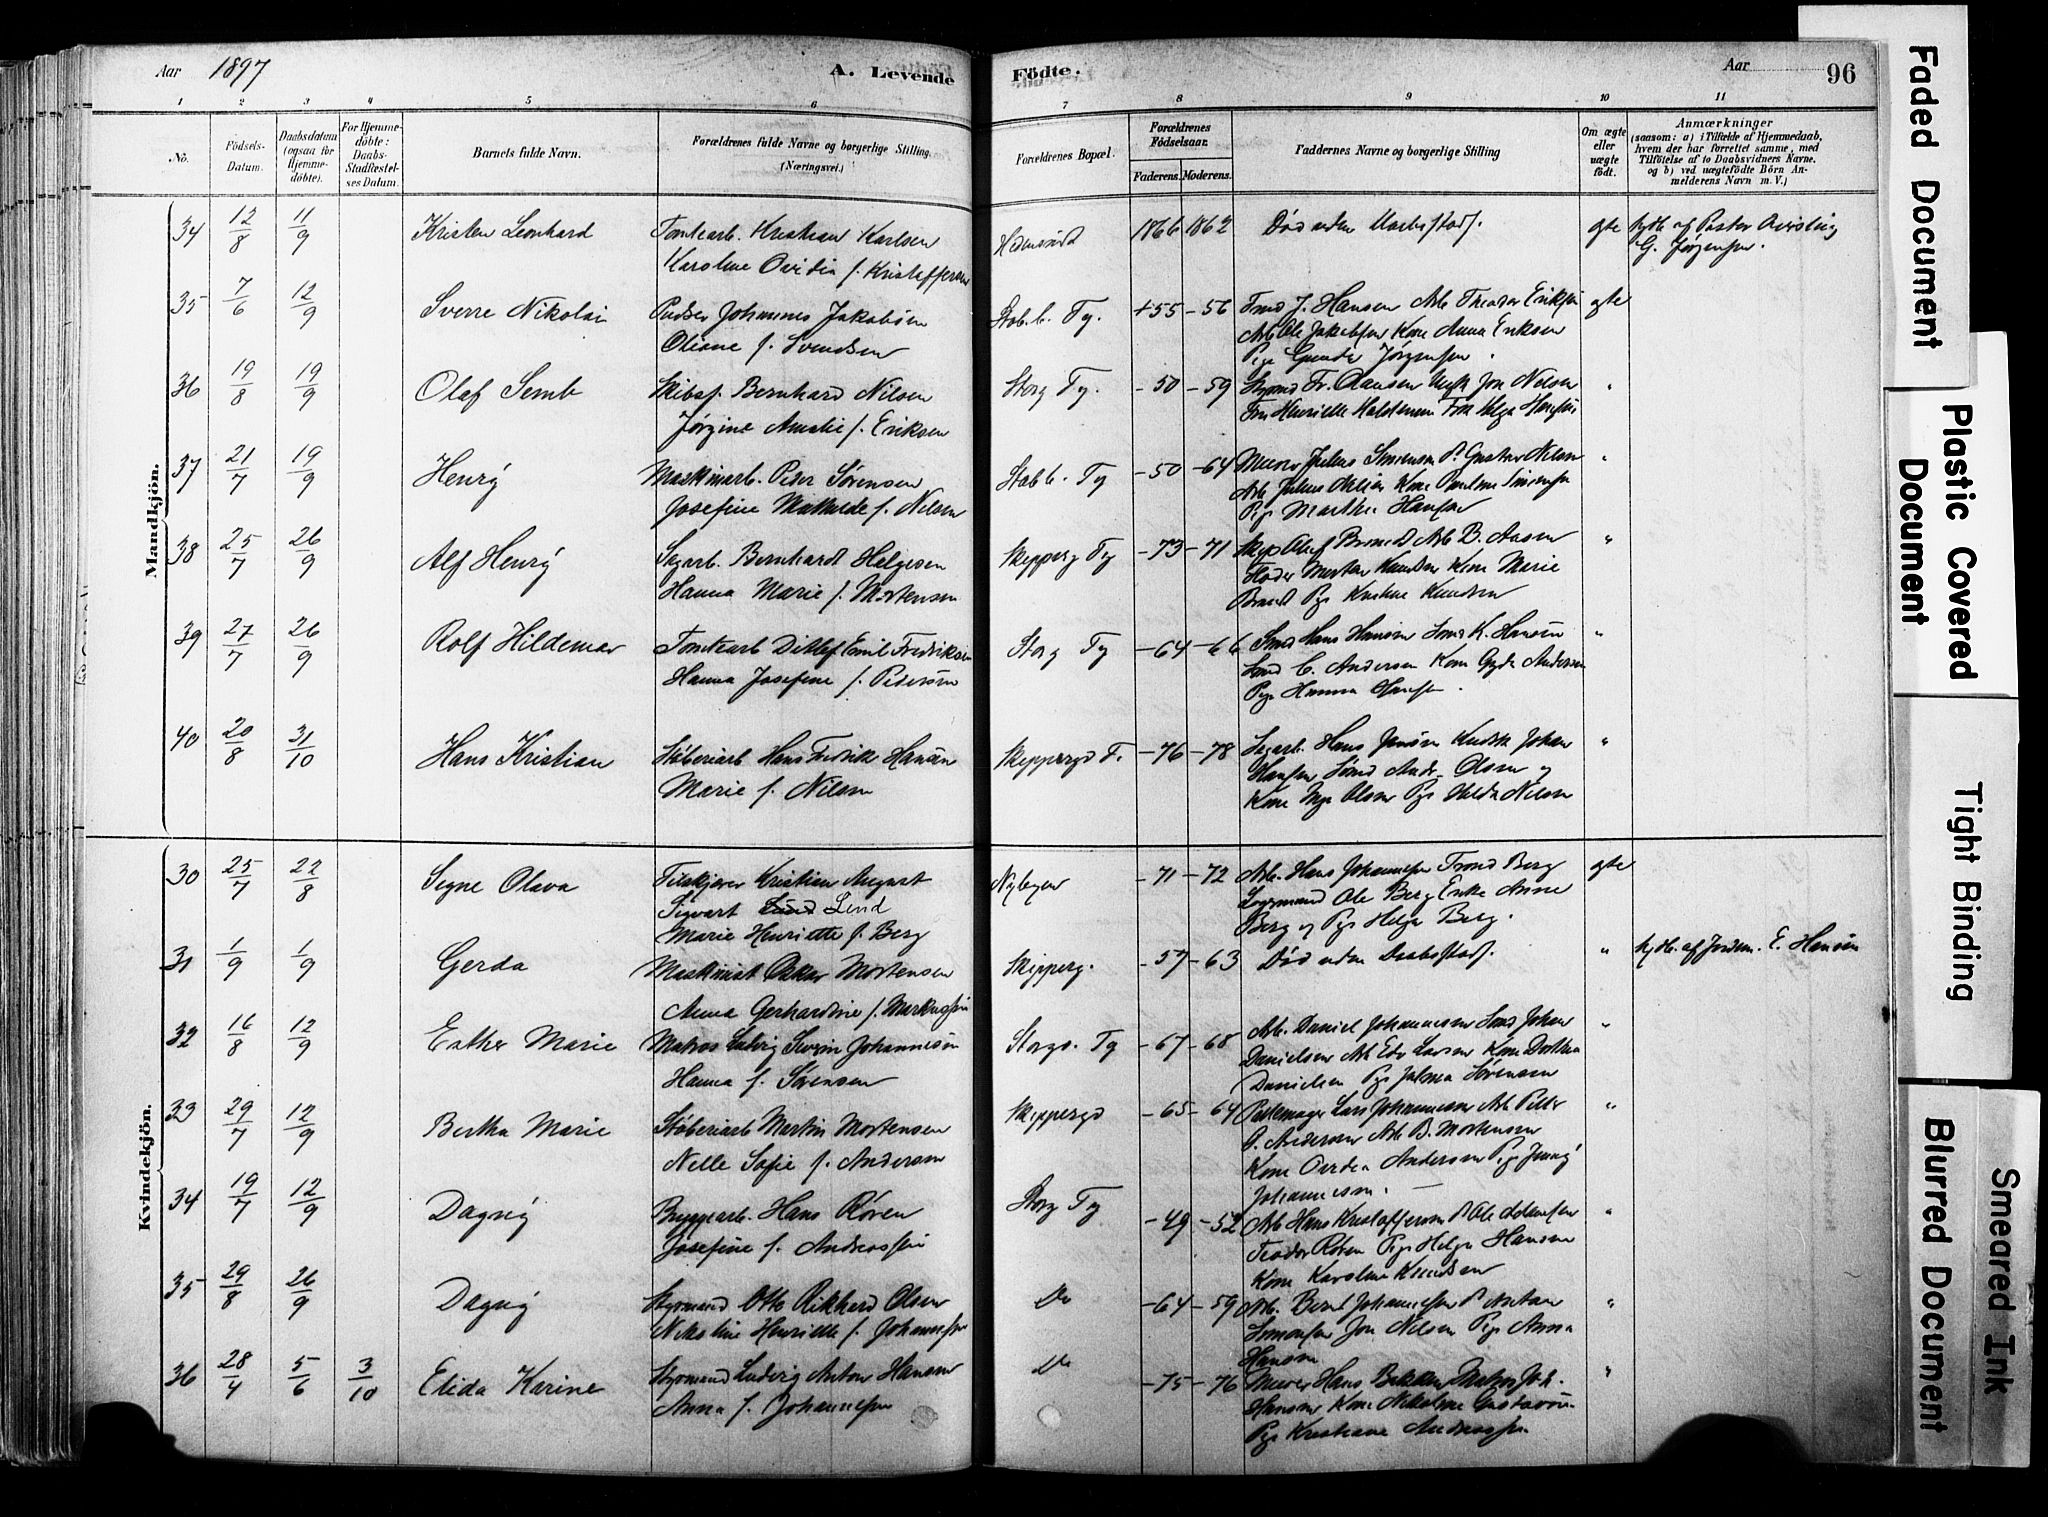 Aar 1897
A. Levende Födte.
Aar 96
1 2 3 4 5 6 7 8 9 10 11
No.
Födsels-Datum.
Daabsdatum (ogsaa for Hjemme-döbte).
For Hjemme-döbte: Daabs-Stadfæstel-ses Datum.
Barnets fulde Navn.
Forældrenes fulde Navne og borgerlige Stilling. (Næringsvei.)
Forældrenes Bopæl.
Forældrenes Födselsaar.
Faderens. Moderens.
Faddernes Navne og borgerlige Stilling
Om ægte eller uægte födt.
Anmærkninger
(saasom: a) i Tilfælde af Hjemmedaab,
hvem der har forrettet samme, med
Tilföielse af to Daabsvidners Navne.
og b) ved uægtefödte Börn An-
melderens Navn m. V.)
Mandkjön.
34 12/8 11/9 Kristen Leonhard Tomtearb. Kristian Karlsen 1866 1862 Død uden Daabsstadf. gte
Karoline Ovidia f. Kristoffersen G. Jørgensen.
35 7/6 12/9 Sverre Nikolai Pudser Johannes Jakobsen Støb.b. Ty. +55 -56 Smed J. Hansen Arb Theodor Eriksen gte
Oliane f. Svendsen Arb Ole Jakobsen Kone Anna Eriksen
Pige Gunda Jørgensen.
36 19/8 19/9 Olaf Semb Skibsf. Bernhard Nilsen Storg Ty. -50 -59 Jon Nilsen "
Jørgine Amalie f. Eriksen
37 21/7 19/9 Henry Maskinarb. Peder Sørensen Støbb. Ty -50 -64 Murer Julius Simensen P. Gustav Nilsen "
Josefine Mathilde f. Nilsen Pige Marthe Hansen
38 25/7 26/9 Alf Henry Sagarb. Bernhardt Helgesen Skipperg Ty -73 -71 Arb B. Aasen "
Hanna Marie f. Mortensen Morten Knudsen Kone Marie
Brandt Pige Kristine Knudsen
39 27/7 26/9 Rolf Hildemar Tomtearb Ditlef Emil Fredriksen Storg Ty -64 -66 Smed Hans Hansen Smed K. Hansen "
Hanna Josefine f. Pedersen Smed C. Andersen Kone Gyda Andersen
Pige Hanna Olausen.
40 20/8 31/10 Hans Kristian Støberiarb Hans Fredrik Hansen Skippergd T. -76 -78 Sagarb. Hans Jensen Kudsk Johan "
Marie f. Nilsen Hansen Smed Andr. Olsen og
Kone Inga Olsen Pige Hulda Nilsen
Kvindekjön.
30 25/7 22/8 Signe Olava Feilskjærer Kristian August Nybyen -71 -72 Arb. Hans Johannesen Trond Berg gte
Sigvart Lind Ole Berg Enke Anne
Marie Henriette f. Berg Berg og Pige Helga Berg.
31 1/9 1/9 Gerda Maskinist Oskar Mortensen Skipperg. -57 -63 Død uden Daabsstadf. " hjdb. af Jordm. E. Hansen
Anna Gerhardine f. Markussen
32 16/8 12/9 Esther Marie Matros Ludvig Severin Johannesen Storgd. Ty -67 -68 Arb. Daniel Johannesen Smed Johan "
Hanna f. Sørensen Danielsen Arb Edv Larsen Kone Dorthea
Danielsen Pige Jalma Sørensen
33 29/7 12/9 Bertha Marie Støberiarb Martin Mortensen Skippergd -65 -64 Lars Johannesen Arb Peder "
Nelle Sofie f. Andersen Andersen Arb B. Mortensen
Kone Ovidia Andersen Pige Jenny
Johannesen.
34 19/7 12/9 Dagny Bryggearb. Hans Røren Storg Ty -49 -52 Arb Hans Kristoffersen "
Josefine f. Andreassen Teodor Røren Pige Helga Hansen
Kone Karoline Knudsen
35 29/8 26/9 Dagny Styrmand Otto Rikhard Olsen Do -64 -59 Arb. Bernt Johannesen P. Anton "
Nikoline Henriette f. Johannesen Simonsen Jon Nilsen Pige Anna
Hansen
36 28/4 5/6 3/10 Elida Karine Styrmand Ludvig Anton Hansen Do -75 -76 Murer Hans Bekken Matros Joh. "
Anna f. Johannesen Hansen Kone Nikoline Gustavsen
Pige Kristiane Andreassen
Faded Document
Plastic Covered Document
Tight Binding
Blurred Document
Smeared Ink